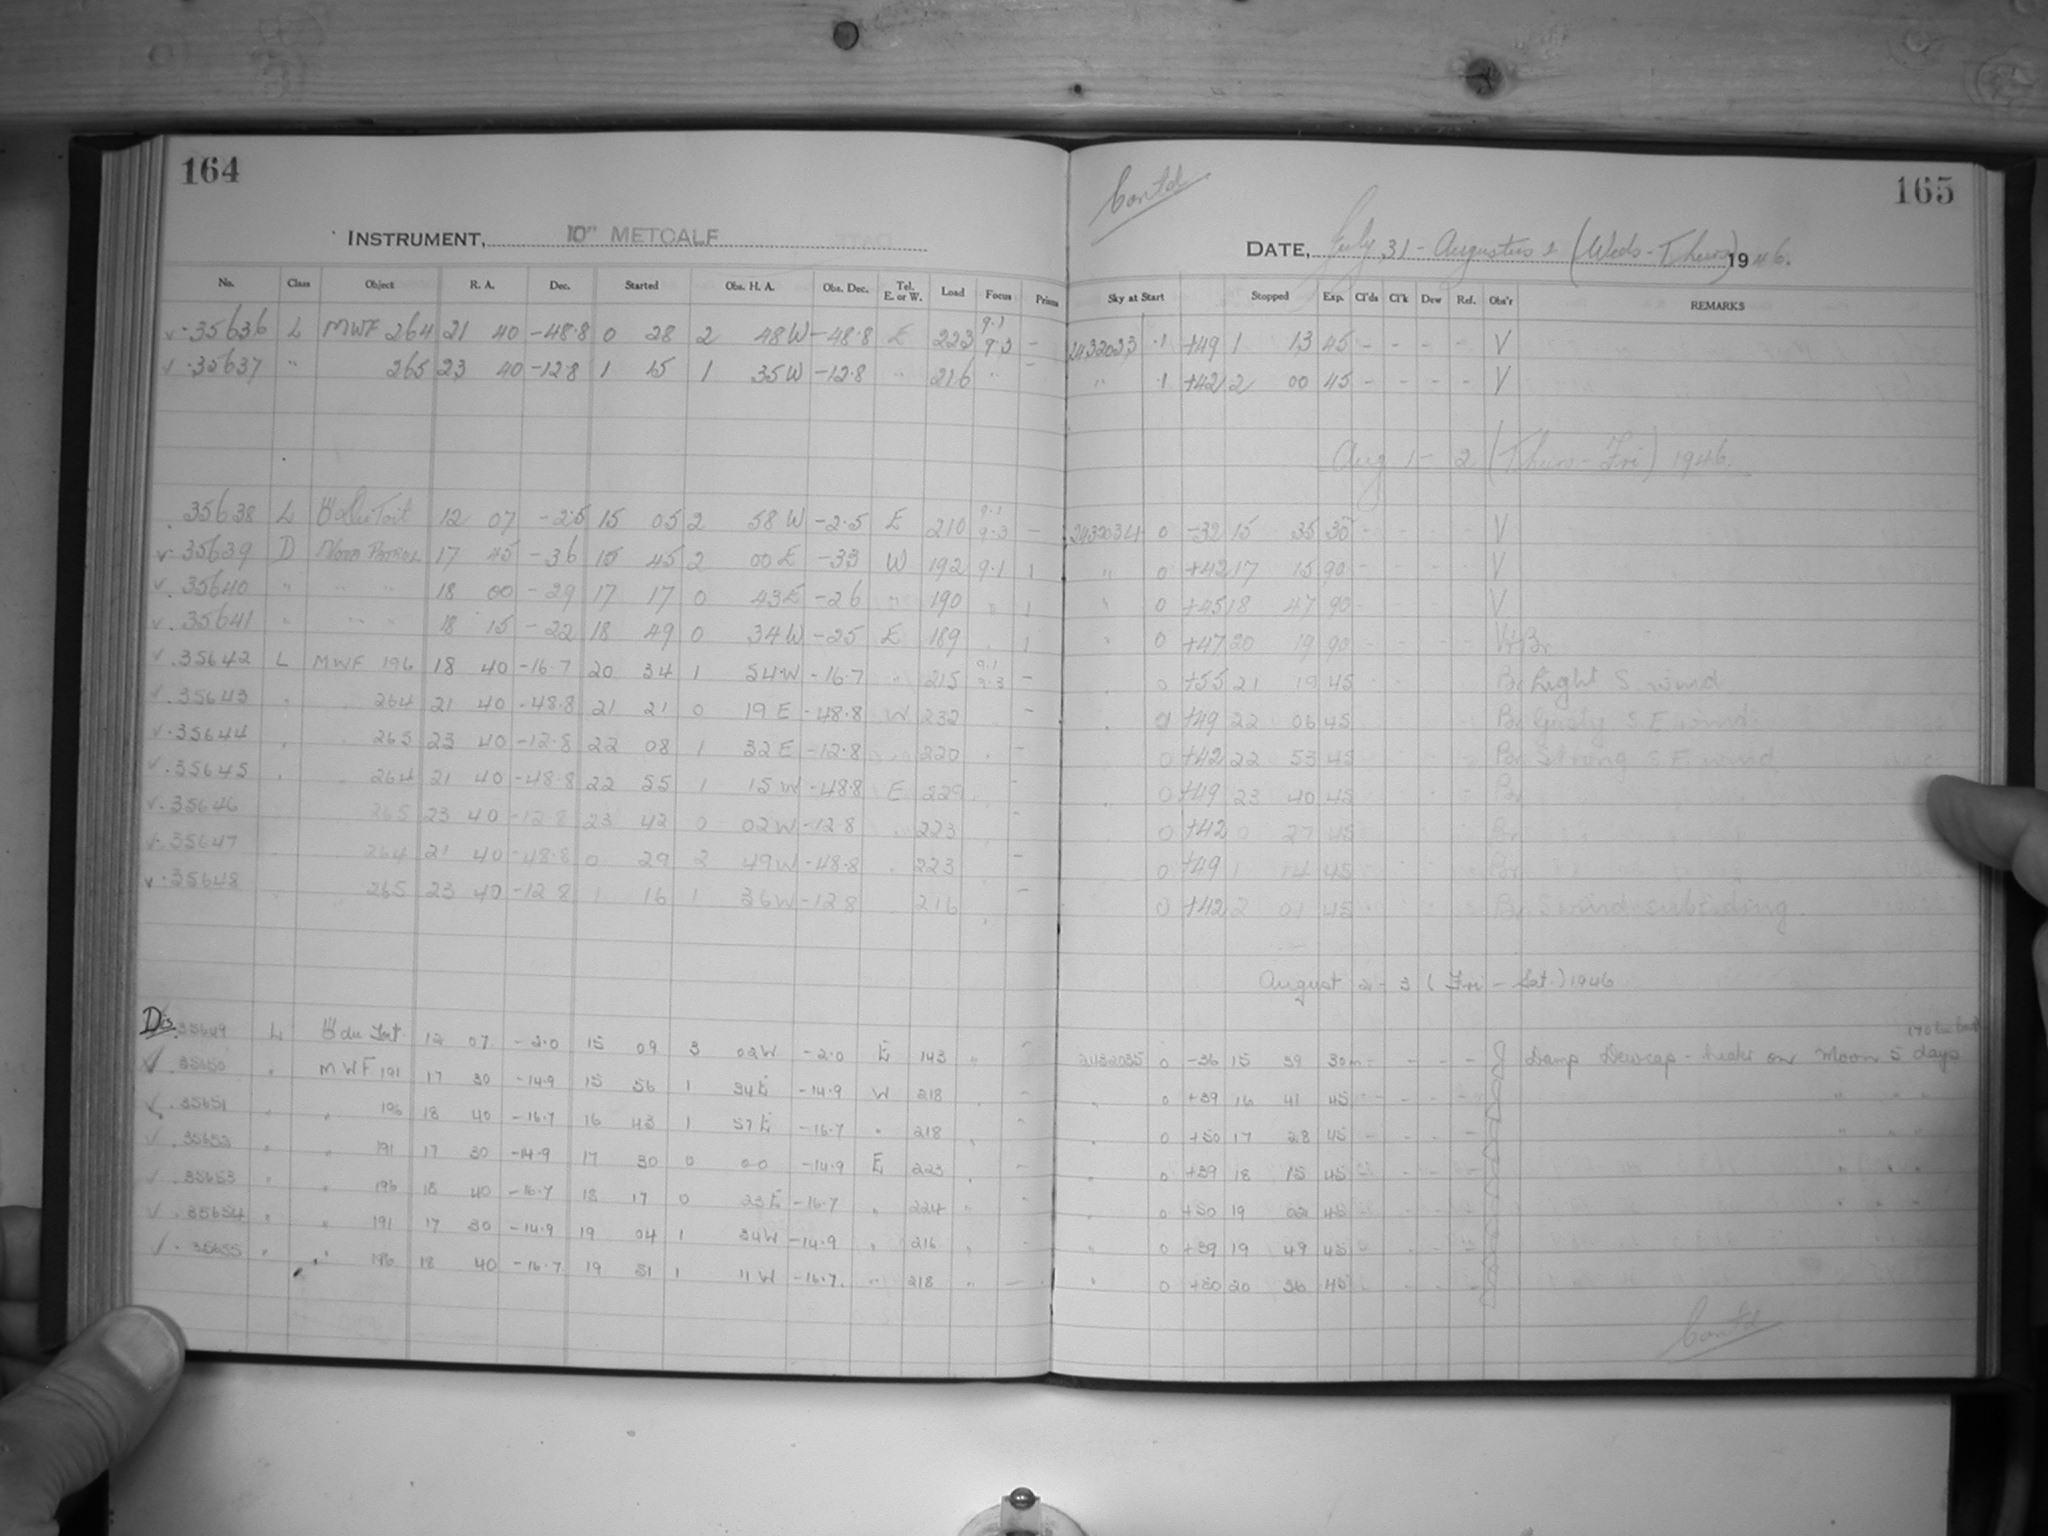 164
INSTRUMENT, 10" METCALF
No. Class Object R. A. Dec. Started Obs. H. A. Obs. Dec. Tel. E. or W. Load Focus Prism
35636 L MWF 264 21 40 -48.8 0 28 2 48 W -48.8 E 223 9.1 9.3 -
35637 " 265 23 40 -12.8 1 15 1 35 W -12.8 " 216 " -
35638 L du Toit 12 07 -2.5 15 05 2 58 W -2.5 E 210 9.1 9.3 -
35639 D Nova Patrol 17 45 -36 15 45 2 00 E -33 W 192 9.1 1
35640 " " " 18 00 -29 17 17 0 43 E -26 " 190 " 1
35641 " " " 18 15 -22 18 49 0 34 W -25 E 189 1
35642 L MWF 196 18 40 -16.7 20 34 1 54 W -16.7 " 215 9.1 9.3 -
35643 264 21 40 -48.8 21 21 0 19 E -48.8 W 232 -
35644 265 23 40 -12.8 22 08 1 32 E -12.8 220 -
35645 264 21 40 -48.8 22 55 1 15 W -48.8 E 229 -
35646 265 23 40 -12.8 23 42 0 02 W -12.8 223
35647 264 21 40 -48.8 0 29 2 49 W -48.8 223 -
35648 265 23 40 -12.8 1 16 1 36 W -12.8 216 -
Dis. 35649 L du Toit 12 07 -2.0 15 09 3 02 W -2.0 E 143 " -
35650 " MWF 191 17 30 -14.9 15 56 1 34 E -14.9 W 218 -
35651 " " 196 18 40 -16.7 16 43 1 57 E -16.7 " 218 -
35652 " " 191 17 30 -14.9 17 30 0 00 -14.9 E 223 -
35653 " " 196 18 40 -16.7 18 17 0 23 E -16.7 " 224 " -
35654 " " 191 17 30 -14.9 19 04 1 34 W -14.9 " 216 " -
35655 " " 196 18 40 -16.7 19 51 1 11 W -16.7 " 218 " -
Contd
165
DATE, July 31 - Augustus 1 (Weds - Thurs) 1946.
Sky at Start Stopped Exp. Cl'ds Cl'k Dew Ref. Obs'r REMARKS
2432033 .1 +49 1 13 45 - - - - V
" .1 +42 2 00 45 - - - - V
Aug 1 - 2 (Thurs - Fri) 1946.
2432034 0 -32 15 35 30 - - - - V
" 0 +42 17 15 90 - - - - V
" 0 +45 18 47 90 - - - - V
" 0 +47 20 19 90 - - - - V+Br
0 +55 21 19 45 Br Light S wind
0 +49 22 06 45 Br Gusty S E wind
0 +42 22 53 45 Br Strong S E wind
0 +49 23 40 45 Br
0 +42 0 27 45 Br
0 +49 1 14 45 Br
0 +42 2 01 45 Br S wind subsiding.
August 2 - 3 (Fri - Sat.) 1946
2432035 0 -36 15 39 30m - - - - Damp Dewcap - heater on Moon 5 days
" 0 +39 16 41 45 - - - - " " "
" 0 +50 17 28 45 - - - - " " "
" 0 +39 18 15 45 - - - - " " "
" 0 +50 19 02 45 - - - - " " "
" 0 +39 19 49 45 - - - -
" 0 +50 20 36 45 - - - -
Contd